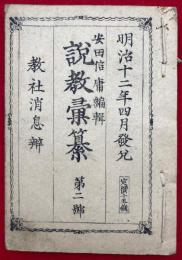 明治十二年四月發兌
安田信庸編輯
說教彙纂
第二號
教社消息辨